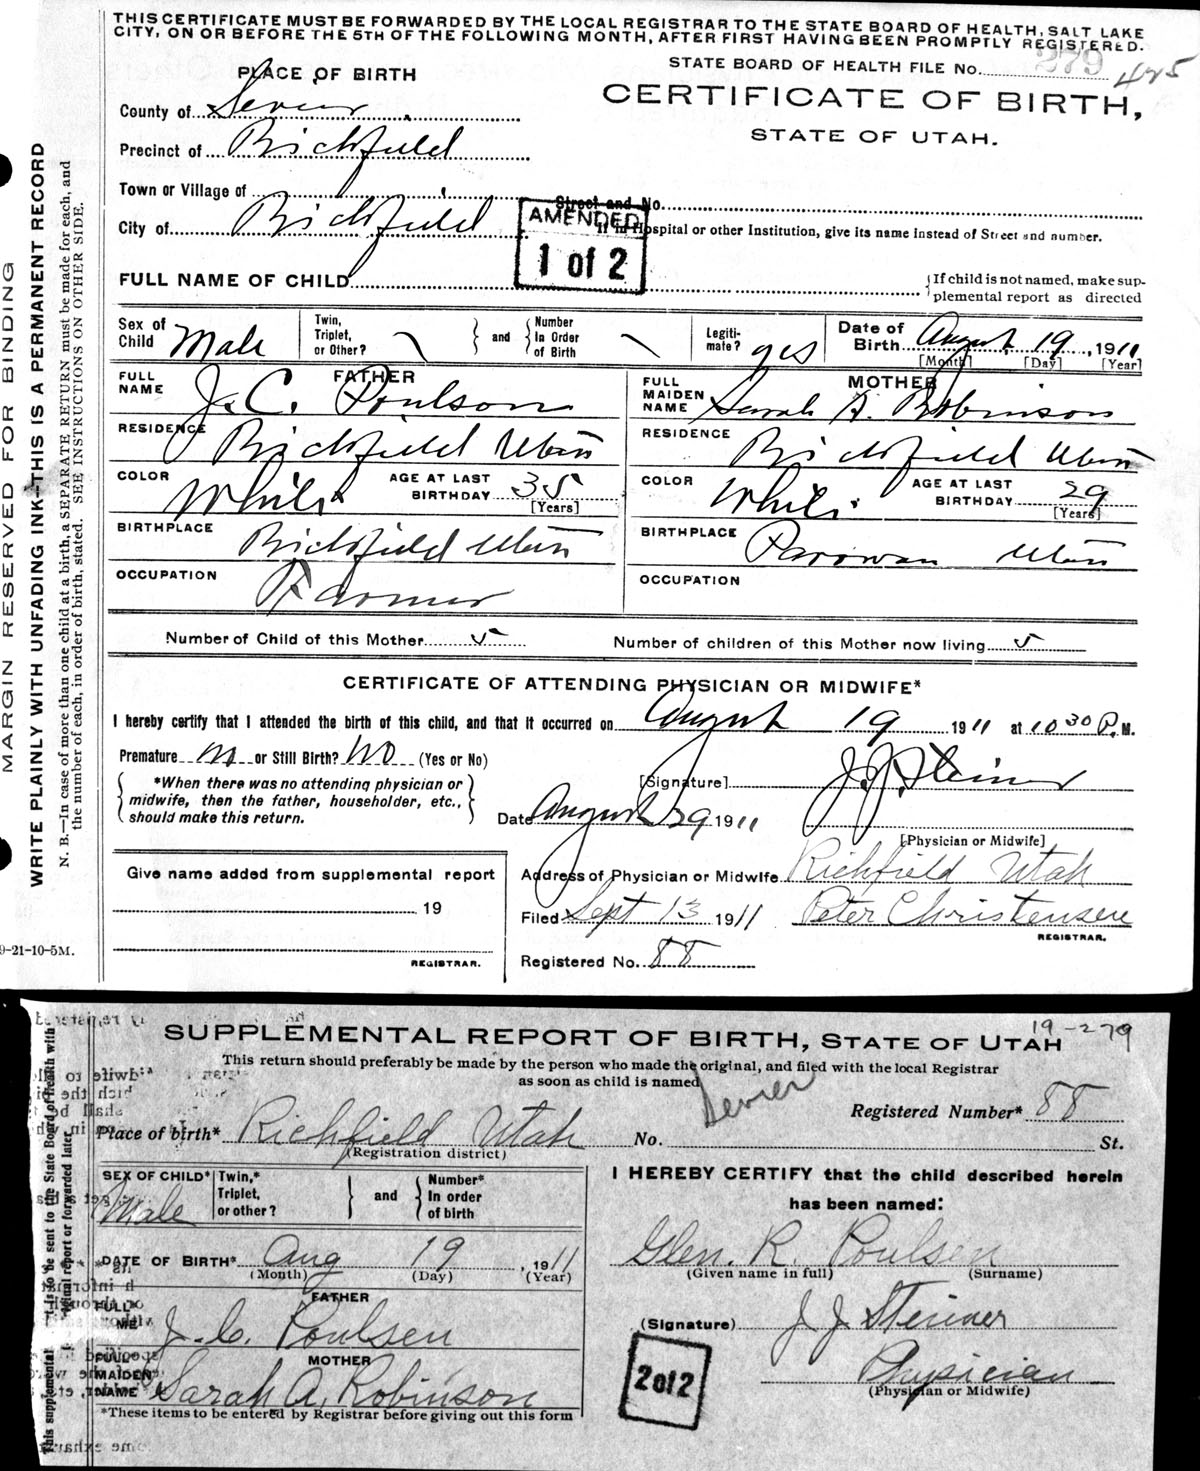 THIS CERTIFICATE MUST BE FORWARDED BY THE LOCAL REGISTRAR TO THE STATE BOARD OF HEALTH, SALT LAKE
CITY, ON OR BEFORE THE 5TH OF THE FOLLOWING MONTH, AFTER FIRST HAVING BEEN PROMPTLY REGISTERED.
STATE BOARD OF HEALTH FILE No. 279 425
PLACE OF BIRTH
CERTIFICATE OF BIRTH,
STATE OF UTAH.
County of Sevier
Precinct of Richfield
Town or Village of
Street and No.
City of Richfield
If in Hospital or other Institution, give its name instead of Street and number.
AMENDED
1 of 2
FULL NAME OF CHILD
If child is not named, make sup-
plemental report as directed
Sex of Child Male
Twin, Triplet, or Other?
and
Number In Order of Birth
Legiti-mate? yes
Date of Birth August 19, 1911
[Month] [Day] [Year]
FATHER
FULL NAME J. C. Poulson
RESIDENCE Richfield Utah
COLOR White
AGE AT LAST BIRTHDAY 35
[Years]
BIRTHPLACE Richfield Utah
OCCUPATION Farmer
MOTHER
FULL MAIDEN NAME Sarah A. Robinson
RESIDENCE Richfield Utah
COLOR White
AGE AT LAST BIRTHDAY 29
[Years]
BIRTHPLACE Parowan Utah
OCCUPATION
Number of Child of this Mother 5 Number of children of this Mother now living 5
CERTIFICATE OF ATTENDING PHYSICIAN OR MIDWIFE*
I hereby certify that I attended the birth of this child, and that it occurred on August 19 1911 at 10 30 P. M.
Premature no or Still Birth? NO (Yes or No)
*When there was no attending physician or
midwife, then the father, householder, etc.,
should make this return.
[Signature] J. J. Steiner
Date August 29 1911
[Physician or Midwife]
Give name added from supplemental report
19
REGISTRAR.
Address of Physician or Midwife Richfield Utah
Filed Sept 13 1911 Peter Christensen
REGISTRAR.
Registered No. 88
MARGIN RESERVED FOR BINDING
WRITE PLAINLY WITH UNFADING INK—THIS IS A PERMANENT RECORD
N. B.—In case of more than one child at a birth, a SEPARATE RETURN must be made for each, and
the number of each, in order of birth, stated. SEE INSTRUCTIONS ON OTHER SIDE.
9-21-10-5M.
19-279
SUPPLEMENTAL REPORT OF BIRTH, STATE OF UTAH
This return should preferably be made by the person who made the original, and filed with the local Registrar
as soon as child is named
Sevier
Registered Number* 88
Place of birth* Richfield Utah No. St.
(Registration district)
SEX OF CHILD* Male
Twin,* Triplet, or other?
and
Number* In order of birth
DATE OF BIRTH* Aug 19, 1911
(Month) (Day) (Year)
FATHER
J. C. Poulsen
MOTHER
MAIDEN NAME Sarah A. Robinson
*These items to be entered by Registrar before giving out this form
I HEREBY CERTIFY that the child described herein
has been named:
Glen. R. Poulsen
(Given name in full) (Surname)
(Signature) J J Steiner
Physician
(Physician or Midwife)
2 of 2